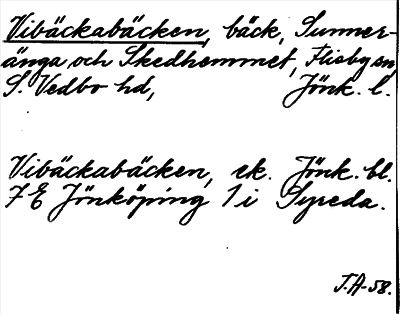 Vibäckabäcken, bäck, Sunner-
änga och Skedhemmet, Flisby sn,
S. Vedbo hd, Jönk. l.
Vibäckabäcken, ek. Jönk. bl.
7 E Jönköping 1 i Syreda.
J.A-58.